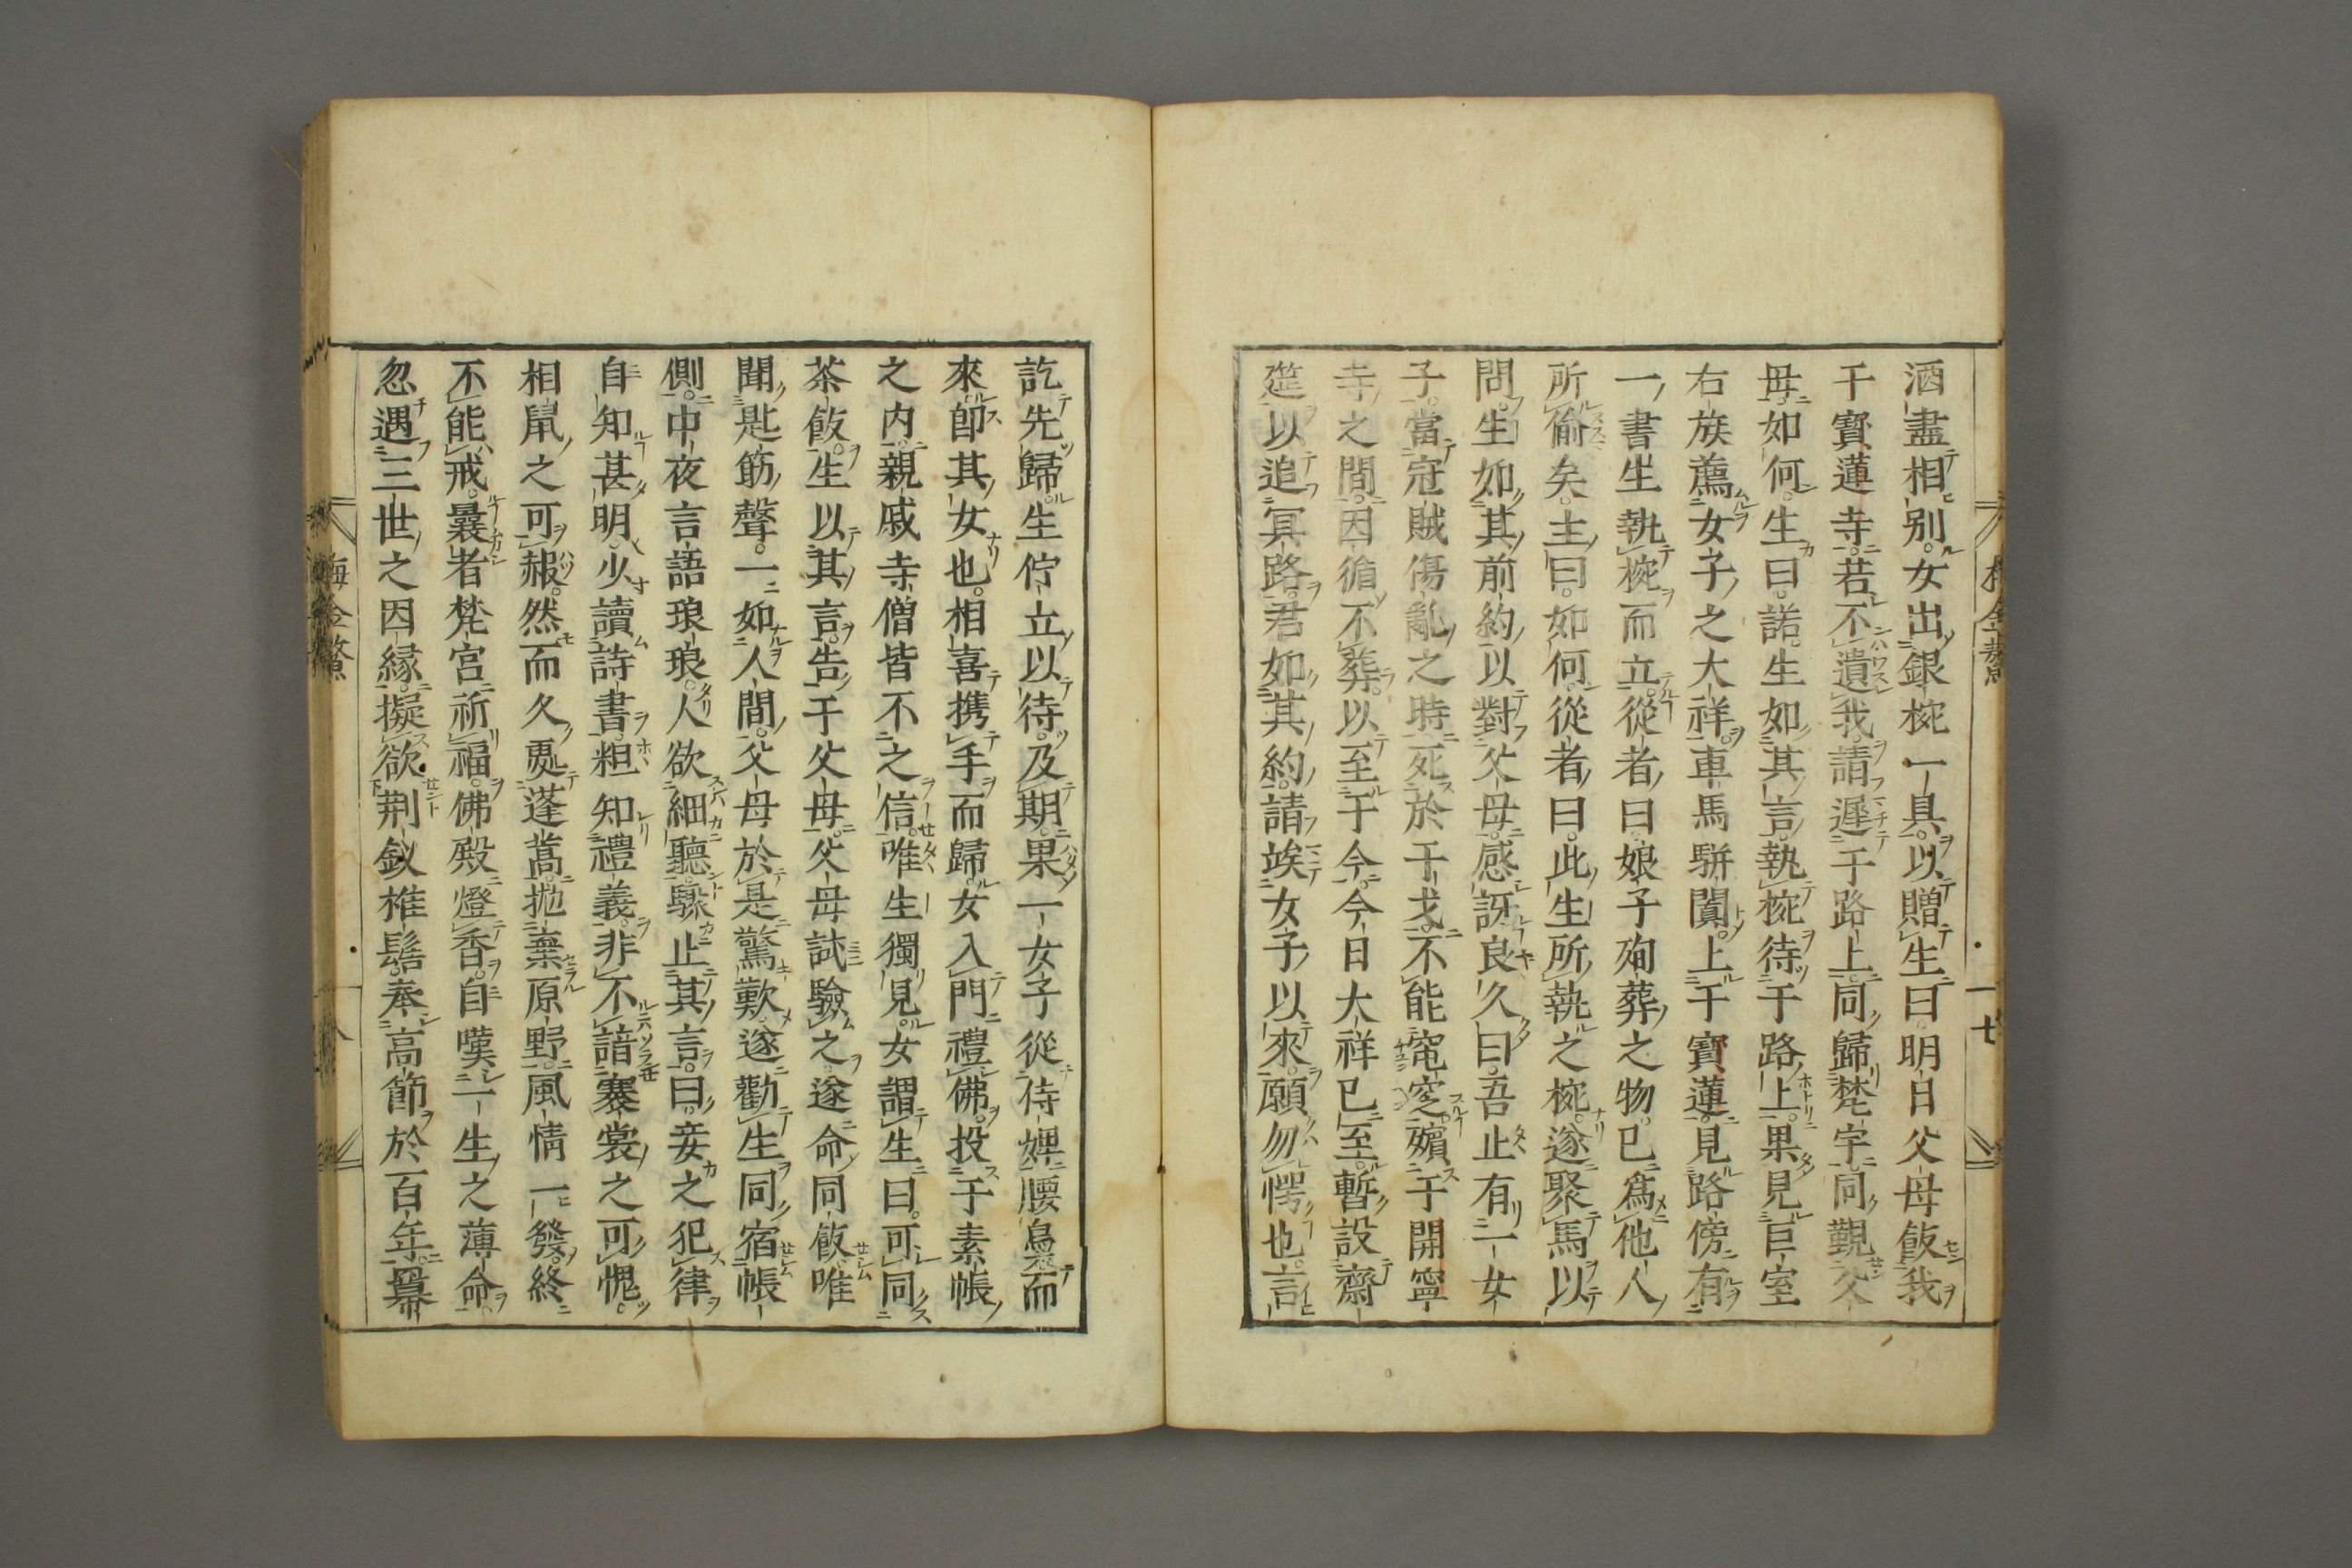 酒盡相別女出銀椀一具以贈生曰明日父母飯我
于寶蓮寺若不遺我請遲于路上同歸梵宇同覲父
母如何生曰諾生如其言執椀待于路上果見巨室
右族薦女子之大祥車馬駢闐上于寶蓮見路傍有
一書生執椀而立從者曰娘子殉葬之物已爲他人
所偸矣主曰如何從者曰此生所執之椀遂聚馬以
問生如其前約以對父母感訝良久曰吾止有一女
子當寇賊傷亂之時死於干戈不能窀窆殯于開寧
寺之間因循不葬以至于今今日大祥已至暫設齋
筵以追冥路君如其約請竢女子以來願勿愕也言
訖先歸生佇立以待及期果一女子從侍婢腰裊而
來卽其女也相喜携手而歸女入門禮佛投于素帳
之內親戚寺僧皆不之信唯生獨見女謂生曰可同
茶飯生以其言告于父母父母試驗之遂命同飯唯
聞匙筯聲一如人間父母於是驚歎遂勸生同宿帳
側中夜言語琅琅人欲細聽驟止其言曰妾之犯律
自知甚明少讀詩書粗知禮義非不諳褰裳之可愧
相鼠之可赧然而久處蓬蒿抛棄原野風情一發終
不能戒曩者梵宮祈福佛殿燒香自嘆一生之薄命
忽遇三世之因緣擬欲荆釵椎髻奉高節於百年羃
梅金鰲
一七